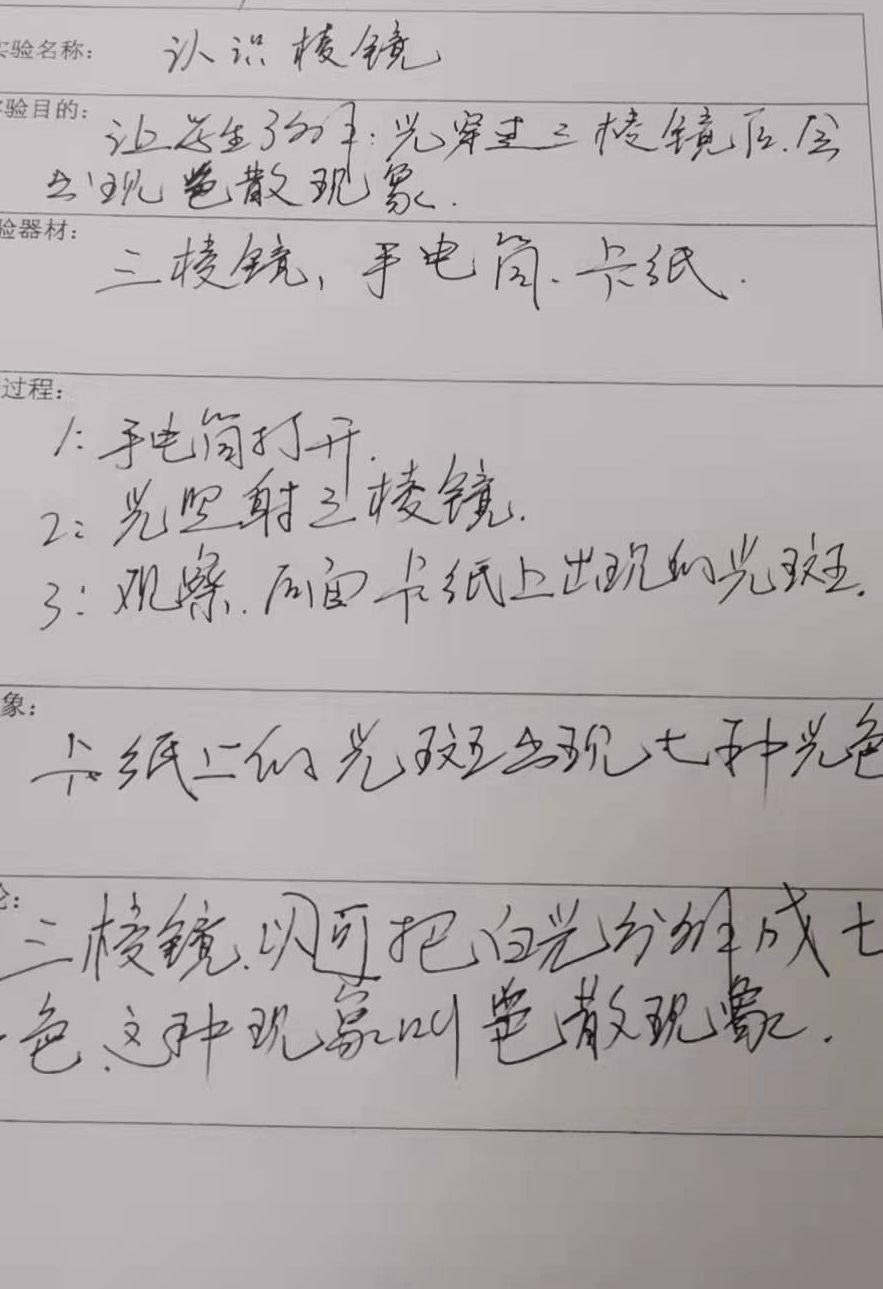 实验名称: 认识棱镜
实验目的: 让学生了解: 光穿过三棱镜后.会
出现色散现象.
验器材: 三棱镜, 手电筒. 卡纸.
过程:
1: 手电筒打开.
2: 光照射三棱镜.
3: 观察. 后面卡纸上出现的光斑.
象:
卡纸上的光斑出现七种光色
论:
三棱镜.以可把白光分解成七
色.这种现象叫色散现象.